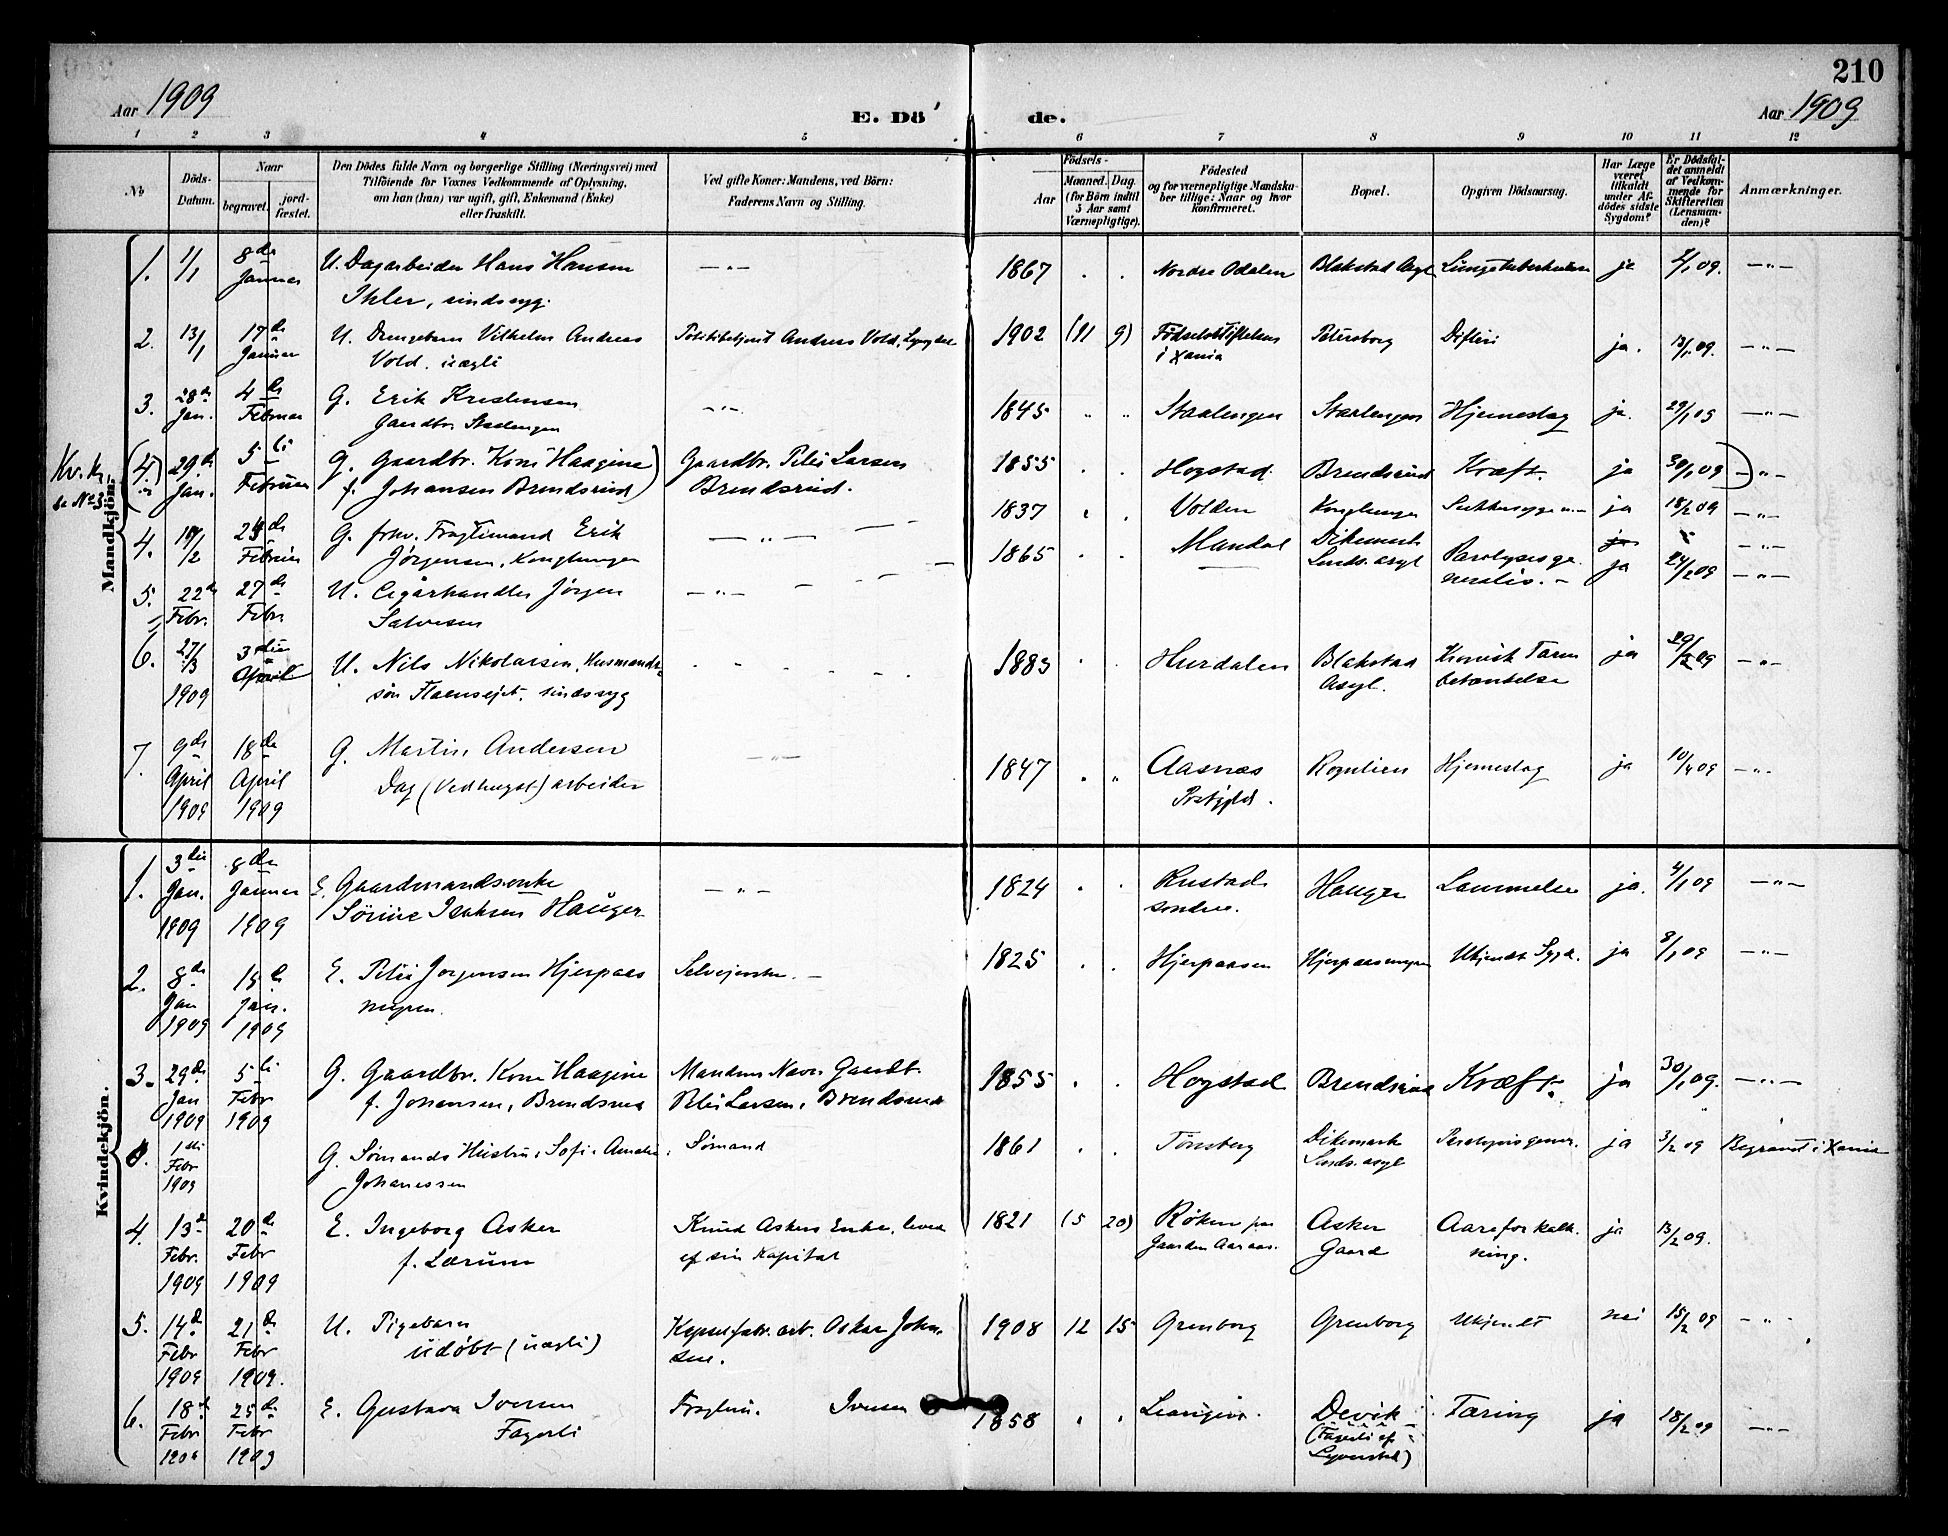 210
Aar 1909
E. Dö
de.
Aar 1909
1 2 3 4 5 6 7 8 9 10 11 12
No
Döds-
Datum.
Naar
begravet.
jord-
fæstet.
Den Dödes fulde Navn og borgerlige Stilling (Næringsvei) med
Tilföiende for Voxnes Vedkommende af Oplysning,
om han (hun) var ugift, gift, Enkemand (Enke)
eller fraskilt.
Ved gifte Koner: Mandens, ved Börn:
Faderens Navn og Stilling.
Födsels-
Aar
Maaned. Dag
(for Börn indtil
5 Aar samt
Værnepligtige).
Födested
og for værnepligtige Mandska-
ber tillige: Naar og hvor
konfirmeret.
Bopæl.
Opgiven Dödsaarsag.
Har Læge
været
tilkaldt
under Af-
dödes sidste
Sygdom?
Er Dödsfal-
det anmeldt
af Vedkom-
mende for
Skifteretten
(Lensman-
den)?
Anmærkninger.
Mandkjön.
1. 1/1 8de Januar U. Dagarbeider Hans Hansen — „ — 1867 . . Nordre Odalen Blakstad Asyl Lungetuberkulose ja 2/1 09. — „ —
Ihler, sindssyg.
2. 13/1 17de Januar U. Drengebarn Vilhelm Andreas Politibetjent Andreas Vold, 1902 (11 9) Födselsstiftelsen Petersborg Difteri ja. 13/1 09. — „ —
Vold. uægte i Xania
3. 28de Jan. 4de Februar G. Erik Kristensen — „ — 1845 „ „ Staalengen Staalengen Hjerneslag ja. 29/1 09 — „ —
Gaardbr. Staalengen
Kv.k.
se No 3
(4.) 29de Jan. 5te Februar G. Gaardbr. Kone Haagine Gaardbr. Peter Larsen 1855 . . Hogstad Brendsrud Kræft. ja 30/1 09 — „ —
f. Johansen Brendsrud) Brendsrud.
4. 2 Februar G. Fragtemand Erik — „ — 1837 . . Volden Konglungen ja 18/2 09 — „ —
Jørgensen, Konglungen
5. 22de Febr. 27de Febr. U. Cigarhandler Jørgen — „ — 1865 . . Mandal Dikemark Sinds.asyl Paralysis ge- neralis. — ja 24/2 09 — „ —
Salvesen
6. 27/3 1909 3die April U. Nils Nikolaisen, Husmands- 1883 . . Hurdalen Blakstad Asyl. Kronisk Tarm betændelse ja 09 — „ —
søn sindssyg
7. 9de April 1909 18de April 1909 G. Martin Andersen — „ — 1847 . „ Aasnæs Hjerneslag ja 10/4 09 — „ —
Dag (Vedhugst) arbeider Prstgjld.
Kvindekjön.
1. 3die Jan. 1909 8de Januar 1909 E. Gaardmandsenke — „ — 1824 . . Rustad søndre. Hauger Lammelse ja. 4/1 09 — „ —
Sörine Isaksen Hauger
2. 8de Jan 1909 15de Jan. 1909 E. Petri Jorgensen Hjerpaas Selveierske. — 1825 . . Hjerpaasen Hjerpaasmyren Ukjendt Sygd. ja 8/1 09 — „ —
myren.
3. 29de Jan 1909 5te Febr 1909 G. Gaardbr. Kone Haagine Mandens Navn Gaardbr. 1855 . . Hogstad Brendsrud Kræft. ja 30/1 09. — „ —
f. Johansen, Brendsrud Peter Larsen, Brendsrud
0. 1ste Febr 1909 G. Sømands Hustru, Sofie Amalie Sømand 1861 . . Tönsberg Dikemark Sinds.asyl ja 3/2 09 Begravet i Xania
Johanessen
4. 13de Febr. 1909 20de Febr 1909 E. Ingeborg Asker Knud Askers Enke, lever 1821 (5 20) Røken paa Gaarden Aaraas. Asker Gaard Aareforkalk- ning. ja 13/2 09.
f. Lærum af sin Kapital
5. 14de Febr 1909 21de Febr 1909. U. Pigebarn Kapselfabr. arb. Oskar John- 1908 12 15 Grenborg Grenborg Ukjendt nei 15/2 09 — „ —
udøbt (uægte) sen.
6. 18de Febr 1909 25de Febr 1909 E. Gustava Iversen Iversen 1858 . . Devik Tæring ja 18/2 09 — „ —
Fagerli (Fagerli af